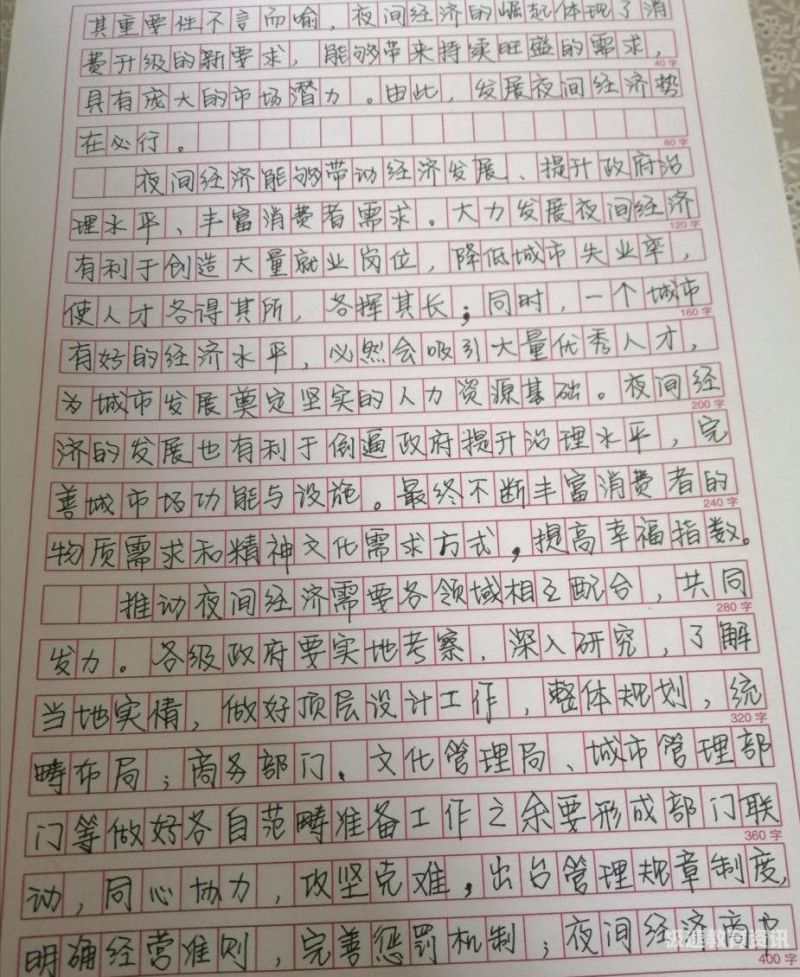 其重要性不言而喻，夜间经济的崛起体现了消
费升级的新要求，能够带来持续旺盛的需求，
40字
具有庞大的市场潜力。由此，发展夜间经济势
在必行。
80字
夜间经济能够带动经济发展、提升政府治
理水平、丰富消费者需求。大力发展夜间经济
120字
有利于创造大量就业岗位，降低城市失业率，
使人才各得其所，各挥其长；同时，一个城市
160字
有好的经济水平，必然会吸引大量优秀人才，
为城市发展奠定坚实的人力资源基础。夜间经
200字
济的发展也有利于倒逼政府提升治理水平，完
善城市场功能与设施。最终不断丰富消费者的
240字
物质需求和精神文化需求方式，提高幸福指数。
推动夜间经济需要各领域相互配合，共同
280字
发力。各级政府要实地考察，深入研究，了解
当地实情，做好顶层设计工作，整体规划，统
320字
畴布局；商务部门、文化管理局、城市管理部
门等做好各自范畴准备工作之余要形成部门联
360字
动，同心协力，攻坚克难，出台管理规章制度，
明确经营准则，完善惩罚机制；夜间经济商户
400字
教育资讯